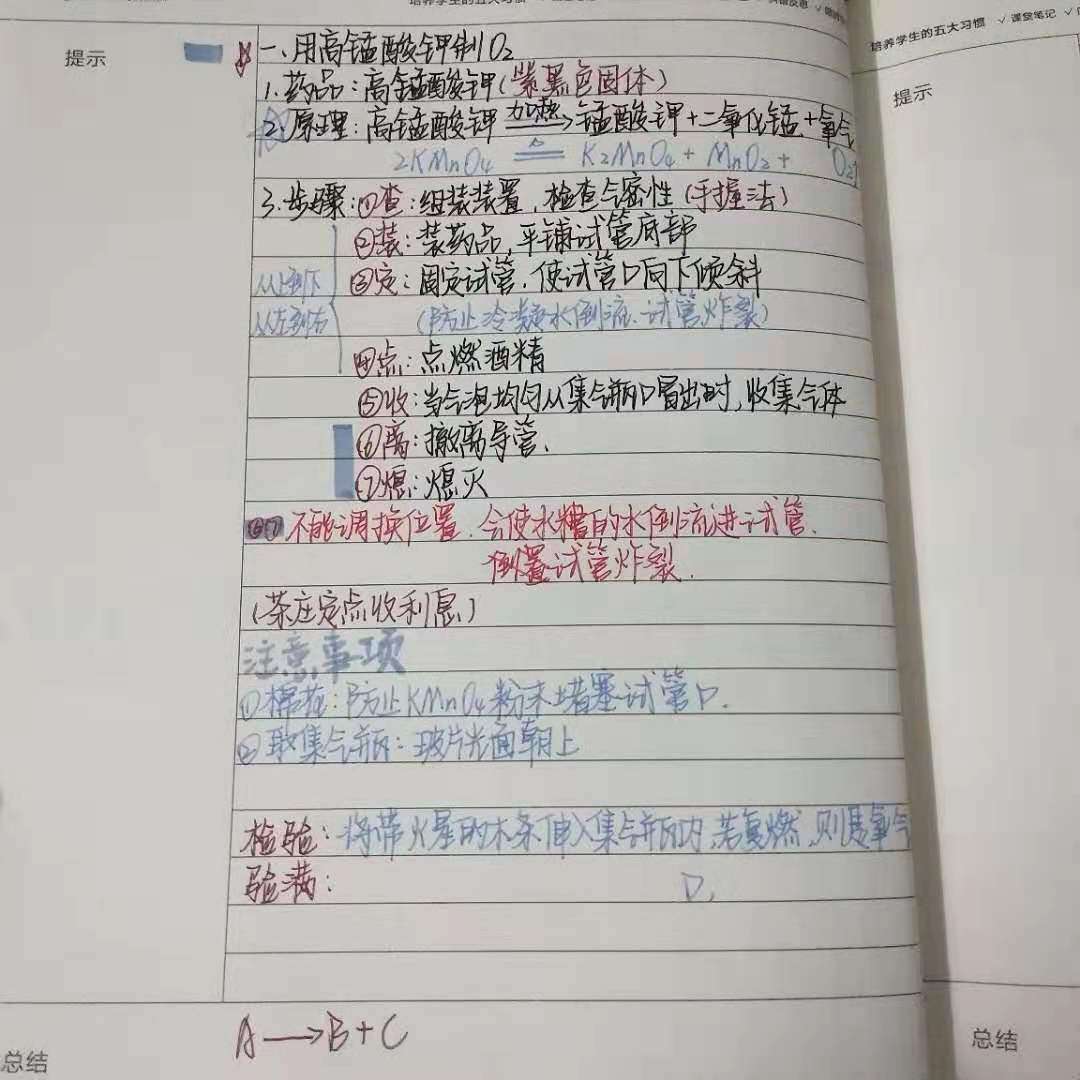 培养学生的五大习惯
培养学生的五大习惯 √课堂笔记 √
提示
提示
一、用高锰酸钾制O₂
1.药品:高锰酸钾(紫黑色固体)
2.原理:高锰酸钾 加热→ 锰酸钾+二氧化锰+氧气
2KMnO₄ △═ K₂MnO₄+ MnO₂+ O₂↑
3.步骤:①查:组装装置,检查气密性(手握法)
②装:装药品,平铺试管底部
从下到下
从左到右
③定:固定试管,使试管口向下倾斜
(防止冷凝水倒流,试管炸裂)
④点:点燃酒精
⑤收:当气泡均匀从集气瓶口冒出时,收集气体
⑥离:撤离导管.
⑦熄:熄灭
⑥⑦不能调换位置.会使水槽的水倒流进试管.
倒置试管炸裂.
(茶庄定点收利息)
注意事项
①棉花:防止KMnO₄粉末堵塞试管口.
②取集气瓶:玻片光面朝上
检验:将带火星的木条伸入集气瓶内,若复燃,则是氧气
验满: 口,
A→B+C
总结
总结